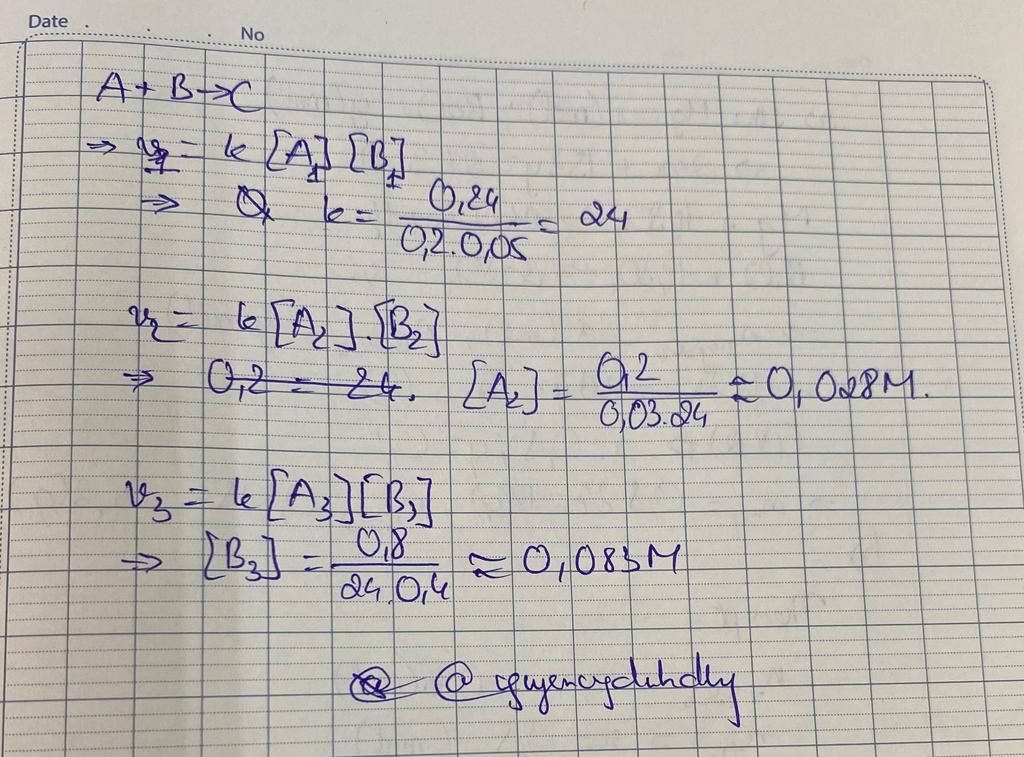 Date . . . No
A + B → C
⇒ v₁ = k [A₁] [B₁]
⇒ k = 0,24 / 0,2.0,05 = 24
v₂ = k [A₂].[B₂]
⇒ 0,2 = 24. [A₂] = 0,2 / 0,03.24 ≈ 0,028M.
v₃ = k [A₃][B₃]
⇒ [B₃] = 0,8 / 24.0,4 ≈ 0,083M
@